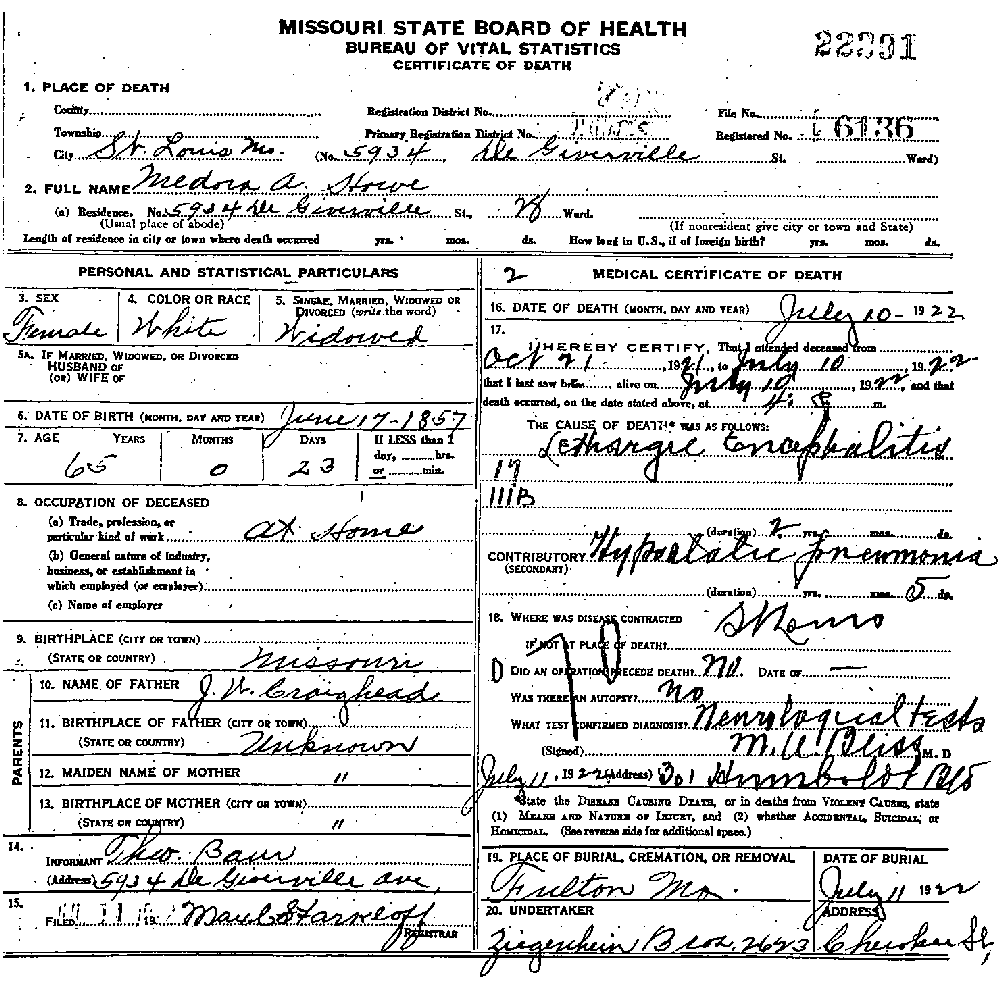 MISSOURI STATE BOARD OF HEALTH
BUREAU OF VITAL STATISTICS
CERTIFICATE OF DEATH
22391
1. PLACE OF DEATH
County
Registration District No.
File No.
Township
Primary Registration District No.
Registered No. 6136
City St. Louis Mo. (No. 5934 De Giverville St. Ward)
2. FULL NAME Medora A. Howe
(a) Residence. No. 5934 De Giverville St., 28 Ward.
(Usual place of abode) (If nonresident give city or town and State)
Length of residence in city or town where death occurred yrs. mos. ds. How long in U.S., if of foreign birth? yrs. mos. ds.
PERSONAL AND STATISTICAL PARTICULARS
3. SEX 4. COLOR OR RACE 5. SINGLE, MARRIED, WIDOWED OR
DIVORCED (write the word)
Female White Widowed
5A. IF MARRIED, WIDOWED, OR DIVORCED
HUSBAND OF
(OR) WIFE OF
6. DATE OF BIRTH (MONTH, DAY AND YEAR) June 17-1857
7. AGE YEARS MONTHS DAYS If LESS than 1
day, hrs.
65 0 23 or min.
8. OCCUPATION OF DECEASED
(a) Trade, profession, or
particular kind of work At Home
(b) General nature of industry,
business, or establishment in
which employed (or employer)
(c) Name of employer
9. BIRTHPLACE (CITY OR TOWN)
(STATE OR COUNTRY) Missouri
PARENTS
10. NAME OF FATHER J. W. Craighead
11. BIRTHPLACE OF FATHER (CITY OR TOWN)
(STATE OR COUNTRY) Unknown
12. MAIDEN NAME OF MOTHER "
13. BIRTHPLACE OF MOTHER (CITY OR TOWN)
(STATE OR COUNTRY) "
14.
INFORMANT Theo. Baur
(Address) 5934 De Giverville ave,
15.
FILED 19 Max C Starkloff
REGISTRAR
2 MEDICAL CERTIFICATE OF DEATH
16. DATE OF DEATH (MONTH, DAY AND YEAR) July 10- 1922
17.
I HEREBY CERTIFY, That I attended deceased from
Oct 21, 1921, to July 10 1922
that I last saw her alive on July 10, 1922, and that
death occurred, on the date stated above, at m.
THE CAUSE OF DEATH* WAS AS FOLLOWS:
Lethargic Encephalitis
17
111B
(duration) 2 yrs. mos. ds.
CONTRIBUTORY Hypostatic Pneumonia
(SECONDARY)
(duration) yrs. mos. 5 ds.
18. WHERE WAS DISEASE CONTRACTED
IF NOT AT PLACE OF DEATH?
DID AN OPERATION PRECEDE DEATH? No. DATE OF —
WAS THERE AN AUTOPSY? No
WHAT TEST CONFIRMED DIAGNOSIS? Neurological tests
(Signed) M. A. Bliss M. D
July 11, 1922 (Address) 301 Humboldt Bld
*State the DISEASE CAUSING DEATH, or in deaths from VIOLENT CAUSES, state
(1) MEANS AND NATURE OF INJURY, and (2) whether ACCIDENTAL, SUICIDAL, or
HOMICIDAL. (See reverse side for additional space.)
19. PLACE OF BURIAL, CREMATION, OR REMOVAL DATE OF BURIAL
Fulton Mo. July 11 1922
20. UNDERTAKER ADDRESS
Ziegenhein Bros. 2623 Cherokee St,